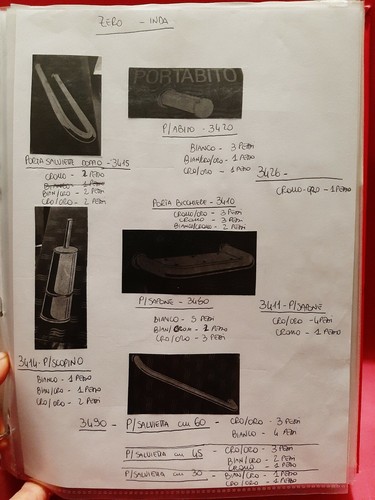 ZERO - INDA
PORTABITO
P/ABITO - 3420
BIANCO - 3 PEZZI
BIAN/CRO/ORO - 1 PEZZO
CRO/ORO - 1 PEZZO
PORTA SALVIETTA DOPPIO - 3415
CROMO - 2 PEZZI
BIANCO - 1 PEZZO
BIAN/ORO - 2 PEZZI
CRO/ORO - 2 PEZZI
3426 -
CROMO-ORO - 1 PEZZO
PORTA BICCHIERE - 3410
CROMO/ORO - 3 PEZZI
CROMO - 3 PEZZI
BIANCO/CROMO - 2 PEZZI
P/SAPONE - 3480
BIANCO - 5 PEZZI
BIAN/CROM - 2 PEZZI
CRO/ORO - 3 PEZZI
3411 - P/SAPONE
CRO/ORO - 4 PEZZI
CROMO - 1 PEZZO
3414 - P/SCOPINO
BIANCO - 1 PEZZO
BIAN/ORO - 1 PEZZO
CRO/ORO - 2 PEZZI
3490 - P/SALVIETTA cm 60 - CRO/ORO - 3 PEZZI
BIANCO - 4 PEZZI
P/SALVIETTA cm 45 - CRO/ORO - 3 PEZZI
BIAN/ORO - 2 PEZZI
CROMO - 1 PEZZO
P/SALVIETTA cm 30 - BIAN/ORO - 1 PEZZO
CRO/ORO - 2 PEZZI